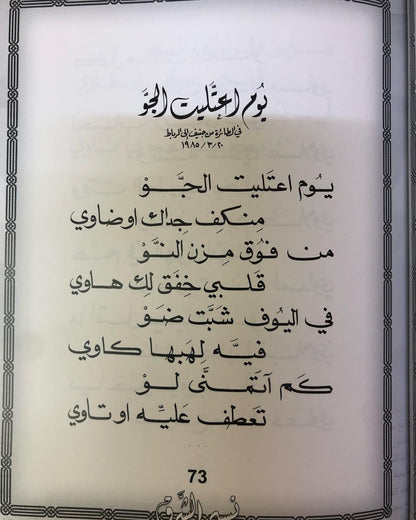 يُوم اعتَليت الجَوّ
في الطائرة من جنيف إلى الرباط
١٩٨٥/٣/٢٠
يُوم اعتَليت الجَّوْ
مِنكِف جداك اوضاوي
من فوُق مزن النَّوْ
قلبي خِفَق لك هاوي
في اليُوف شَبَّت ضَوْ
فيَّه لهَبها كاوي
كَم آتمَنَّى لَوْ
تَعطف عَليِّه اوتاوي
. . .
73